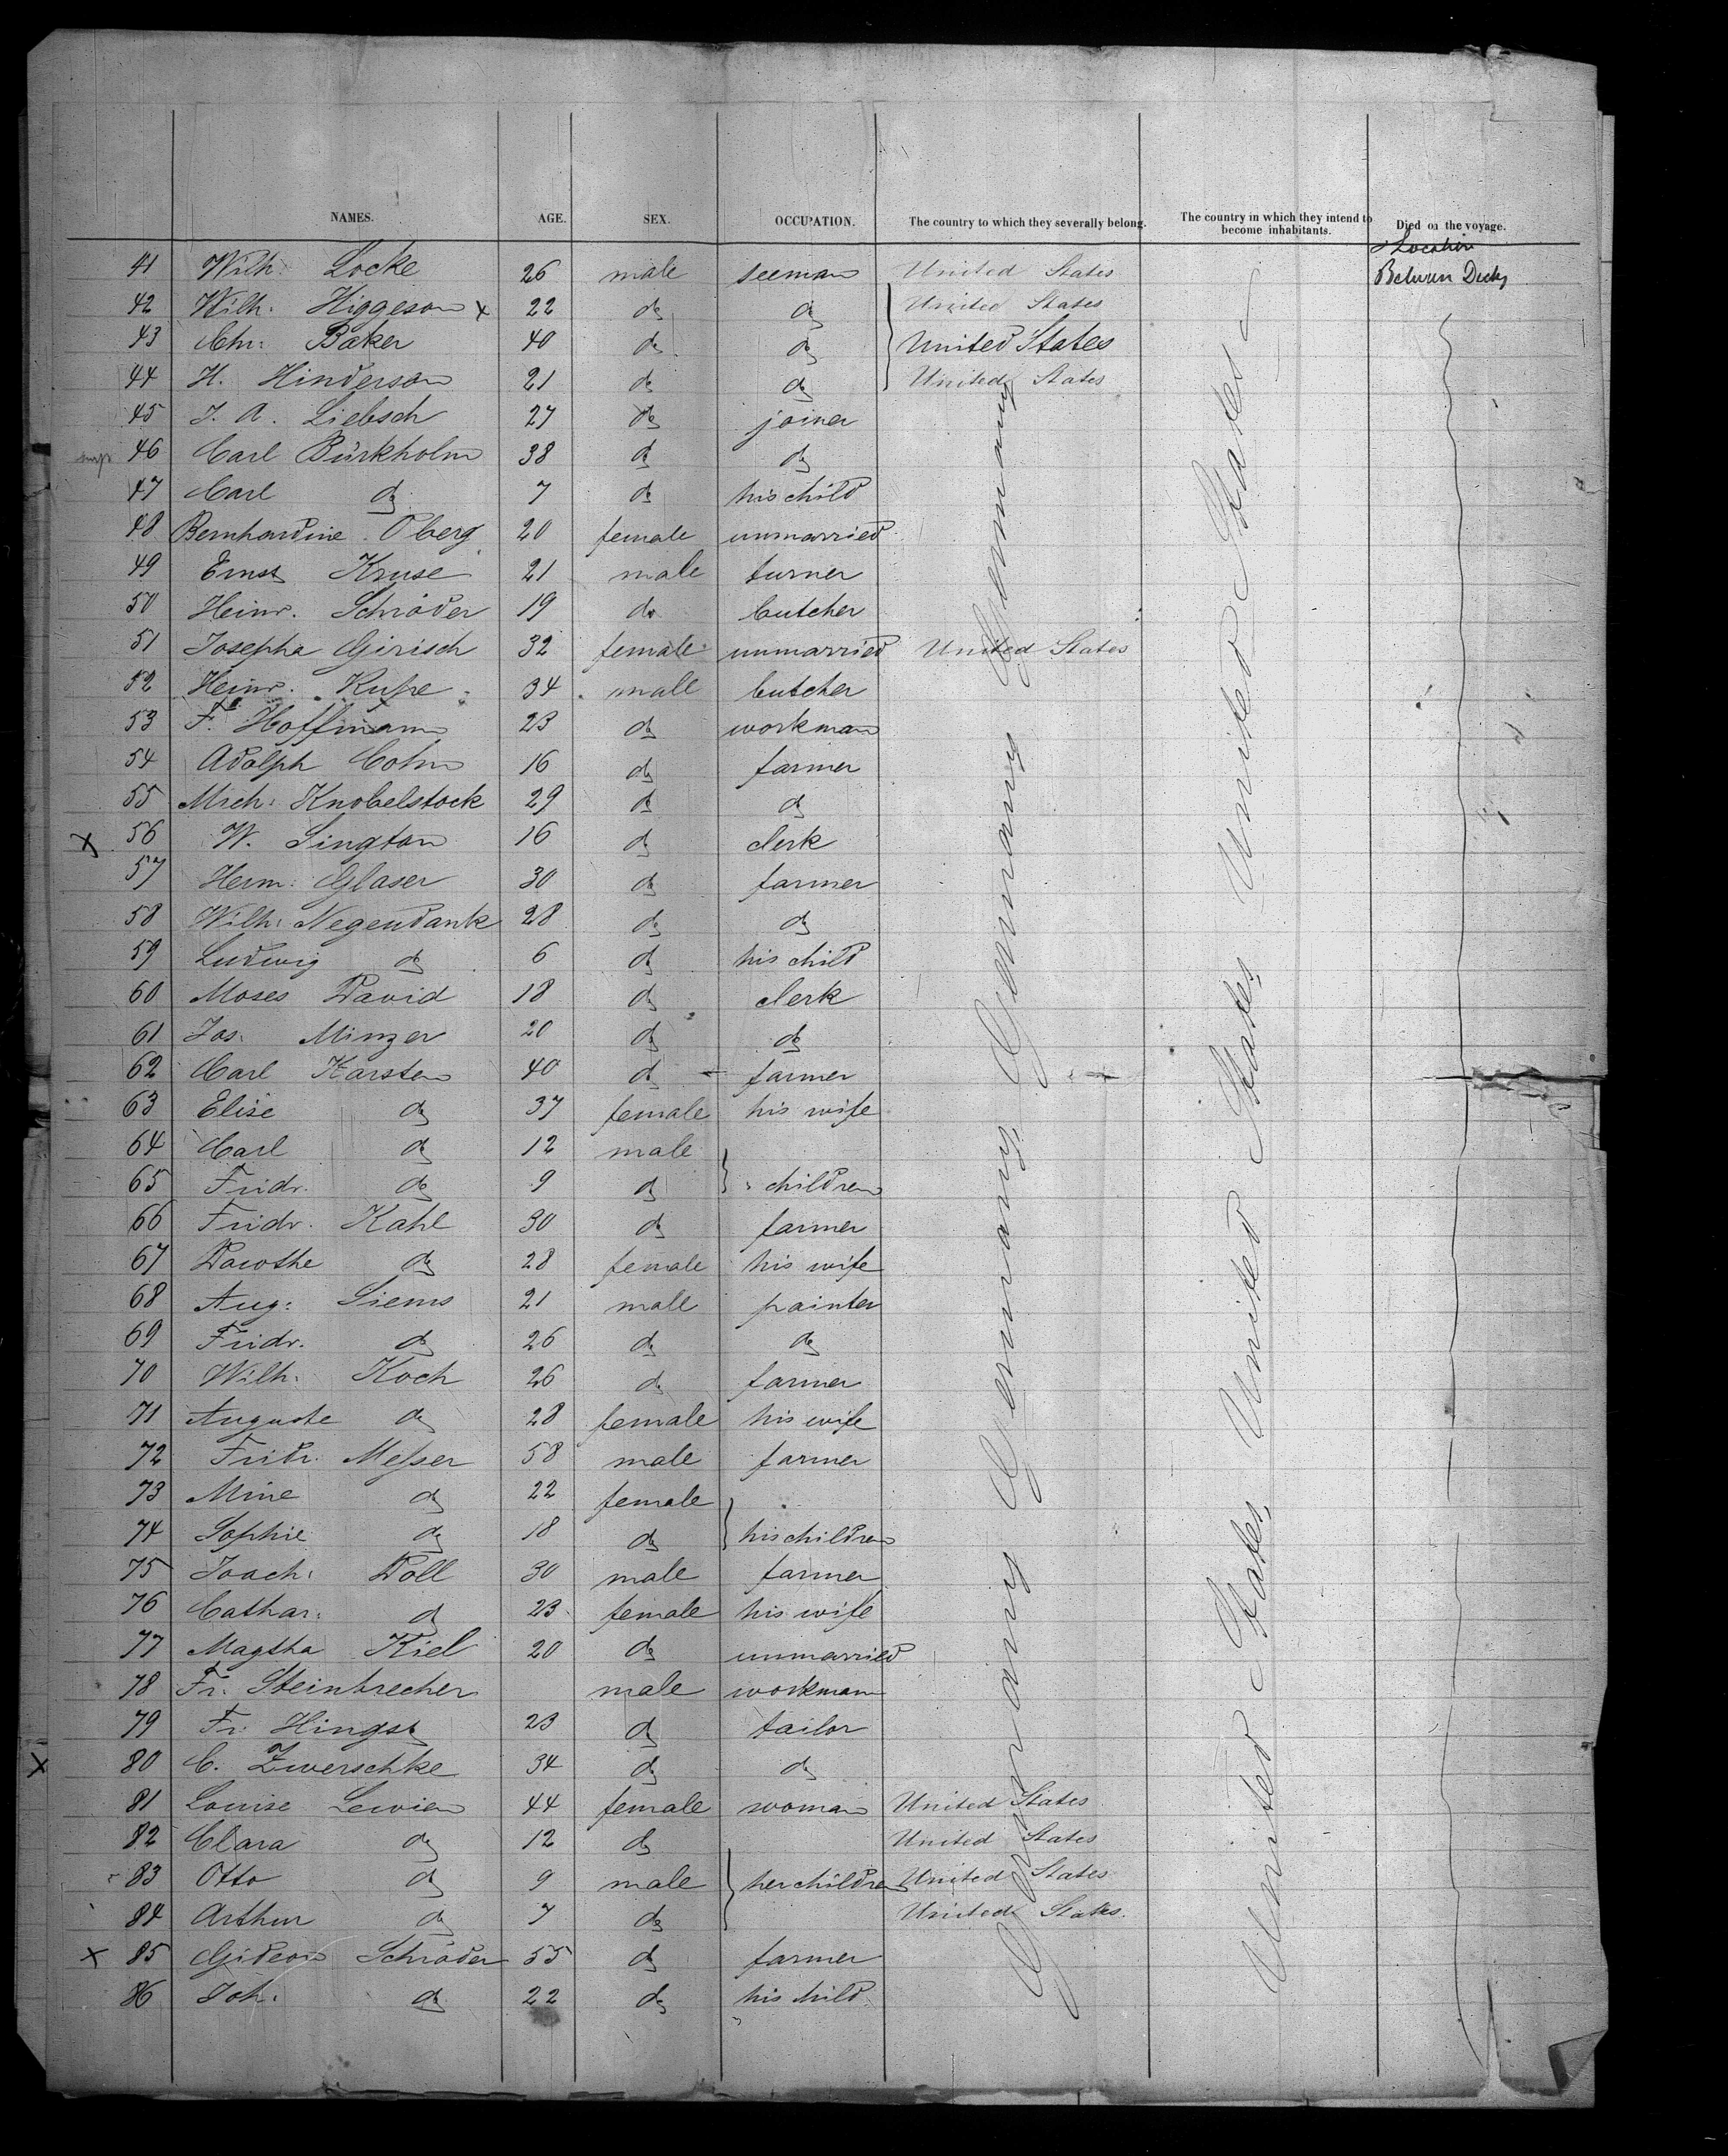 NAMES. AGE. SEX. OCCUPATION. The country to which they severally belong. The country in which they intend to become inhabitants. Died on the voyage.
Location
41 Wilh. Locke 26 male seeman United States Between Decks
42 Wilh. Higgeson x 22 do do United States
43 Chr. Baker 40 do do United States
44 H. Hinderson 21 do do United States
45 J. A. Liebsch 27 do joiner
46 Carl Bürkholm 38 do do
47 Carl do 7 do his child
48 Bernhardine Oberg 20 female unmarried
49 Ernst Kruse 21 male turner
50 Heinr. Schröder 19 do butcher
51 Josepha Girisch 32 female unmarried United States
52 Heinr. Kupe 34 male butcher
53 F. Hoffmann 23 do workman
54 Adolph Cohn 16 do farmer
55 Mich: Knobelstock 29 do do
x 56 W. Sington 16 do clerk
57 Herm: Glaser 30 do farmer
58 Wilh: Negendank 28 do do
59 Ludwig do 6 do his child
60 Moses David 18 do clerk
61 Jos. Minzer 20 do do
62 Carl Karsten 40 do farmer
63 Elise do 37 female his wife
64 Carl do 12 male
65 Fridr. do 9 do children
66 Fridr. Kahl 30 do farmer
67 Dorothe do 28 female his wife
68 Aug: Siems 21 male painter
69 Fridr. do 26 do do
70 Wilh. Koch 26 do farmer
71 Auguste do 28 female his wife
72 Fridr. Messer 58 male farmer
73 Mine do 22 female
74 Sophie do 18 do his children
75 Joach: Doll 30 male farmer
76 Cathar: do 23 female his wife
77 Magtha Kiel 20 do unmarried
78 Fr. Steinbrecher male workman
79 Fr. Hingst 23 do tailor
x 80 C. Zwerschke 34 do do
81 Louise Lewien 44 female woman United States
82 Clara do 12 do United States
83 Otto do 9 male her children United States
84 Arthur do 7 do United States.
x 85 Gideon Schröder 55 do farmer
86 Joh. do 22 do his child
Germany Germany Germany Germany Germany
United States United States United States United States